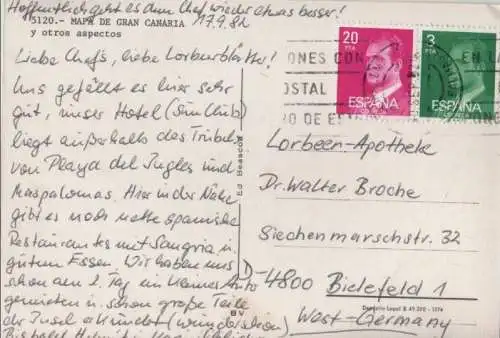 Hoffentlich geht es dem Chef wieder etwas besser!
5120.- MAPA DE GRAN CANARIA
y otros aspectos
17.9.82
Liebe Chefs, liebe Lorbeerblätter!
Uns gefällt es hier sehr
gut, unser Hotel (Sun Club)
liegt außerhalb des Trubels
von Playa del Ingles und
Maspalomas. Hier in der Nähe
gibt es noch nette spanische
Restaurants mit Sangria u.
gutem Essen. Wir haben uns
schon am 1. Tag ein kleines Auto
gemietet u. schon große Teile
der Insel erkundet (wunderschön)
Ed Beascoa
BV
20
PTA
ESPAÑA
3
PTA
ESPAÑA
ONES CON
OSTAL
O DE
Lorbeer-Apotheke
Dr. Walter Broche
Siechenmarschstr. 32
D-4800 Bielefeld 1
West-Germany